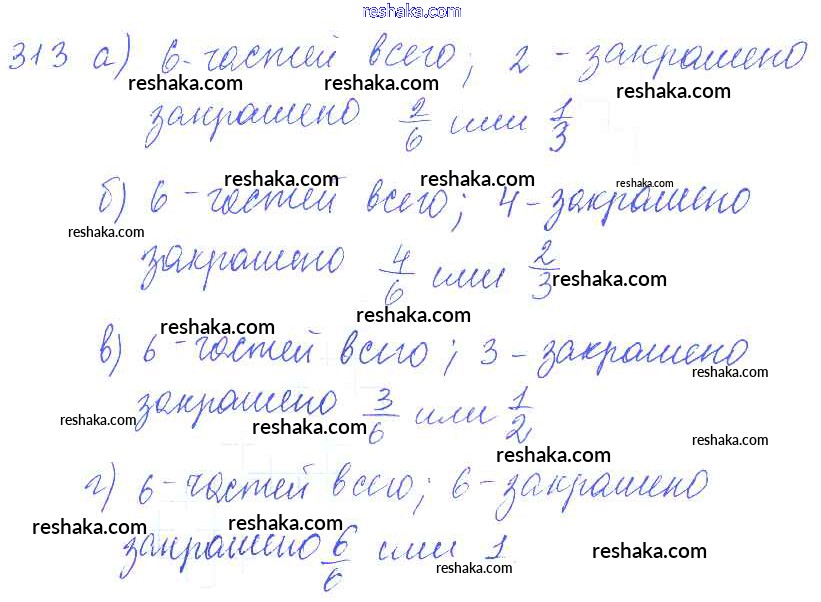 reshaka.com
313 а) 6-частей всего; 2 - закрашено
reshaka.com reshaka.com reshaka.com
закрашено 2/6 или 1/3
reshaka.com reshaka.com reshaka.com
б) 6 - частей всего; 4 - закрашено
reshaka.com
закрашено 4/6 или 2/3
reshaka.com
reshaka.com reshaka.com
в) 6 - частей всего; 3 - закрашено
reshaka.com
закрашено 3/6 или 1/2
reshaka.com reshaka.com reshaka.com
reshaka.com
г) 6 - частей всего; 6 - закрашено
reshaka.com reshaka.com
закрашено 6/6 или 1
reshaka.com reshaka.com